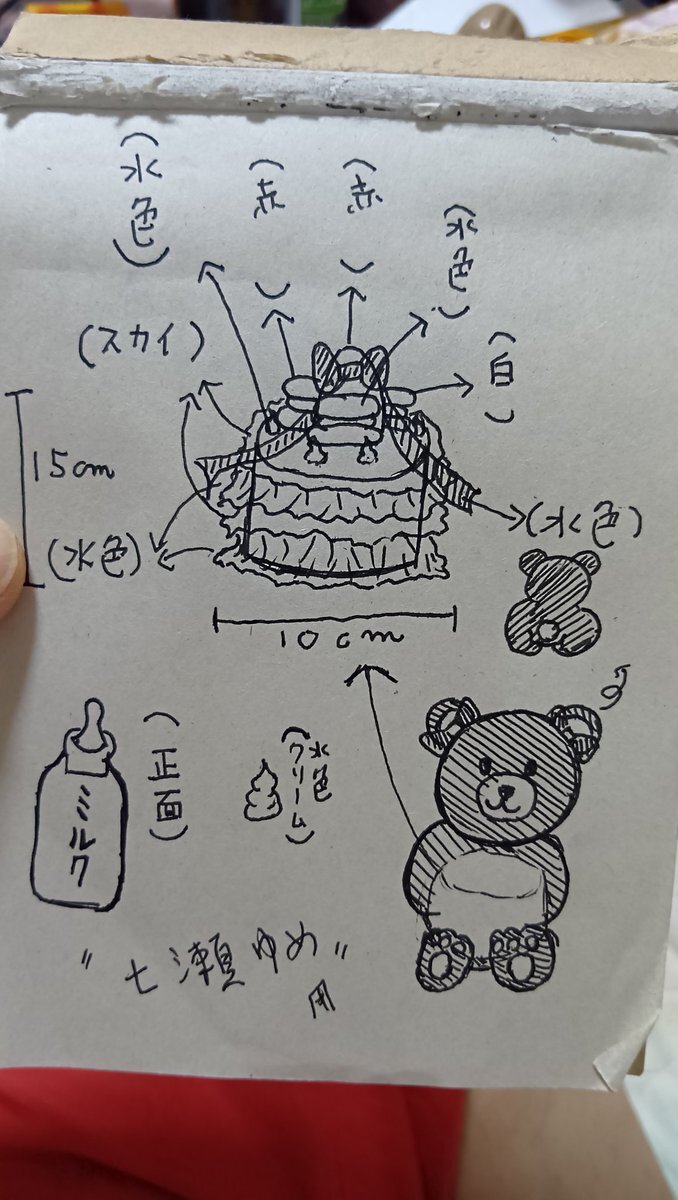 (水色)
(赤)
(赤)
(水色)
(白)
(スカイ)
15cm
(水色)
(水色)
10cm
ミルク
(正面)
(水色
クリーム)
"七瀬ゆめ"
用